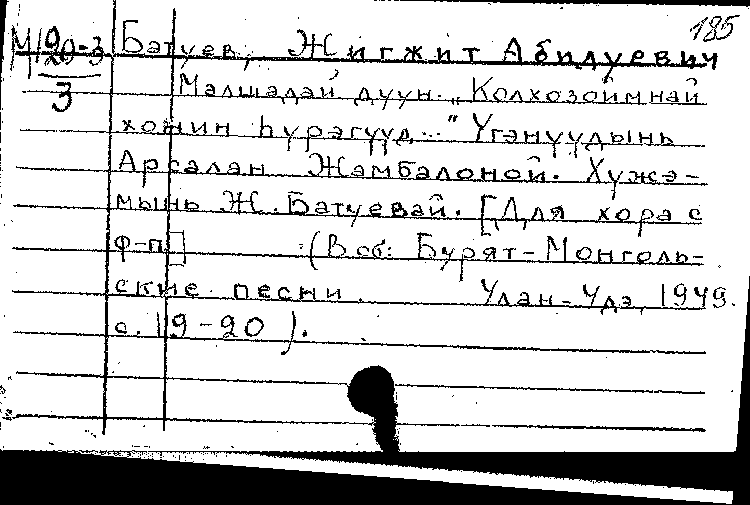 185
М 20-3 Батуев, Жигжит Абидуевич
3
Малшадай дуун. „Колхозоймнай
хонин һүрэгүүд..." Үгэнүүдынь
Арсалан Жамбалоной. Хүжэ-
мынь Ж. Батуевай. [Для хора с
ф-п] (В сб: Бурят-Монголь-
ские песни. Улан-Удэ, 1949.
с. 19-20).